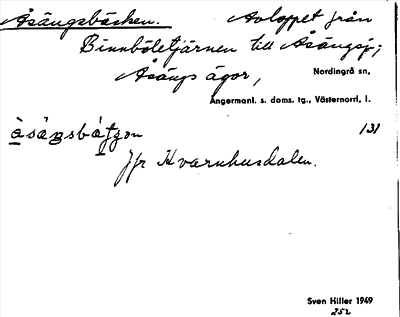 Åsängsbäcken. Avloppet från
Binnböletjärnen till Åsängsj;
Åsängs ägor, Nordingrå sn,
Ångermanl. s. doms. tg., Västernorrl. l.
131
Jfr Kvarnhusdalen.
Sven Hiller 1949
252